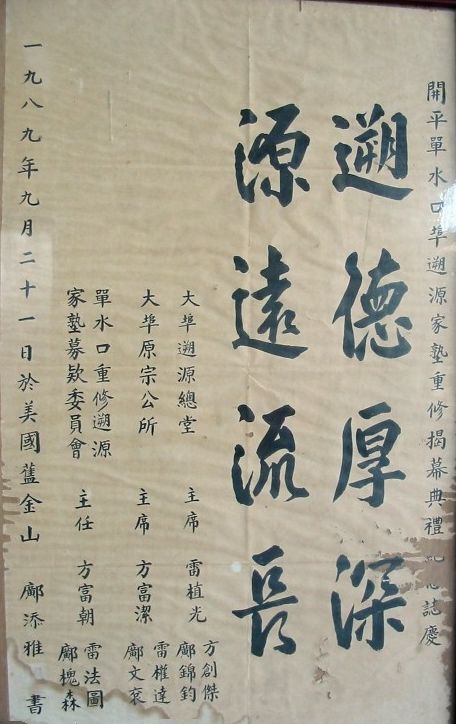 開平單水口埠遡源家塾重修揭幕典禮誌慶
遡德厚深
源遠流長
大埠遡源總堂 主席 雷植光 鄺錦鈞 方創傑
大埠原宗公所 主席 方富潔 鄺文袞 雷權達
單水口重修遡源
家塾募欵委員會 主任 方富朝 鄺槐森 雷法圖
一九八九年九月二十一日於美國舊金山 鄺添雅 書